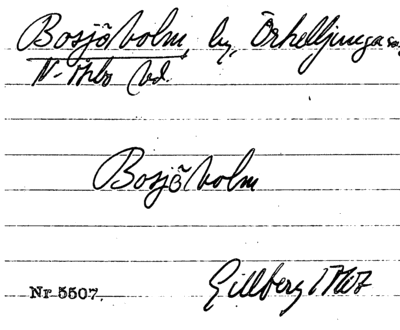 Bosjöholm, by, Örkelljunga
N. Åsbo hd
Bosjöholm
Gillberg 1767
Nr 5507